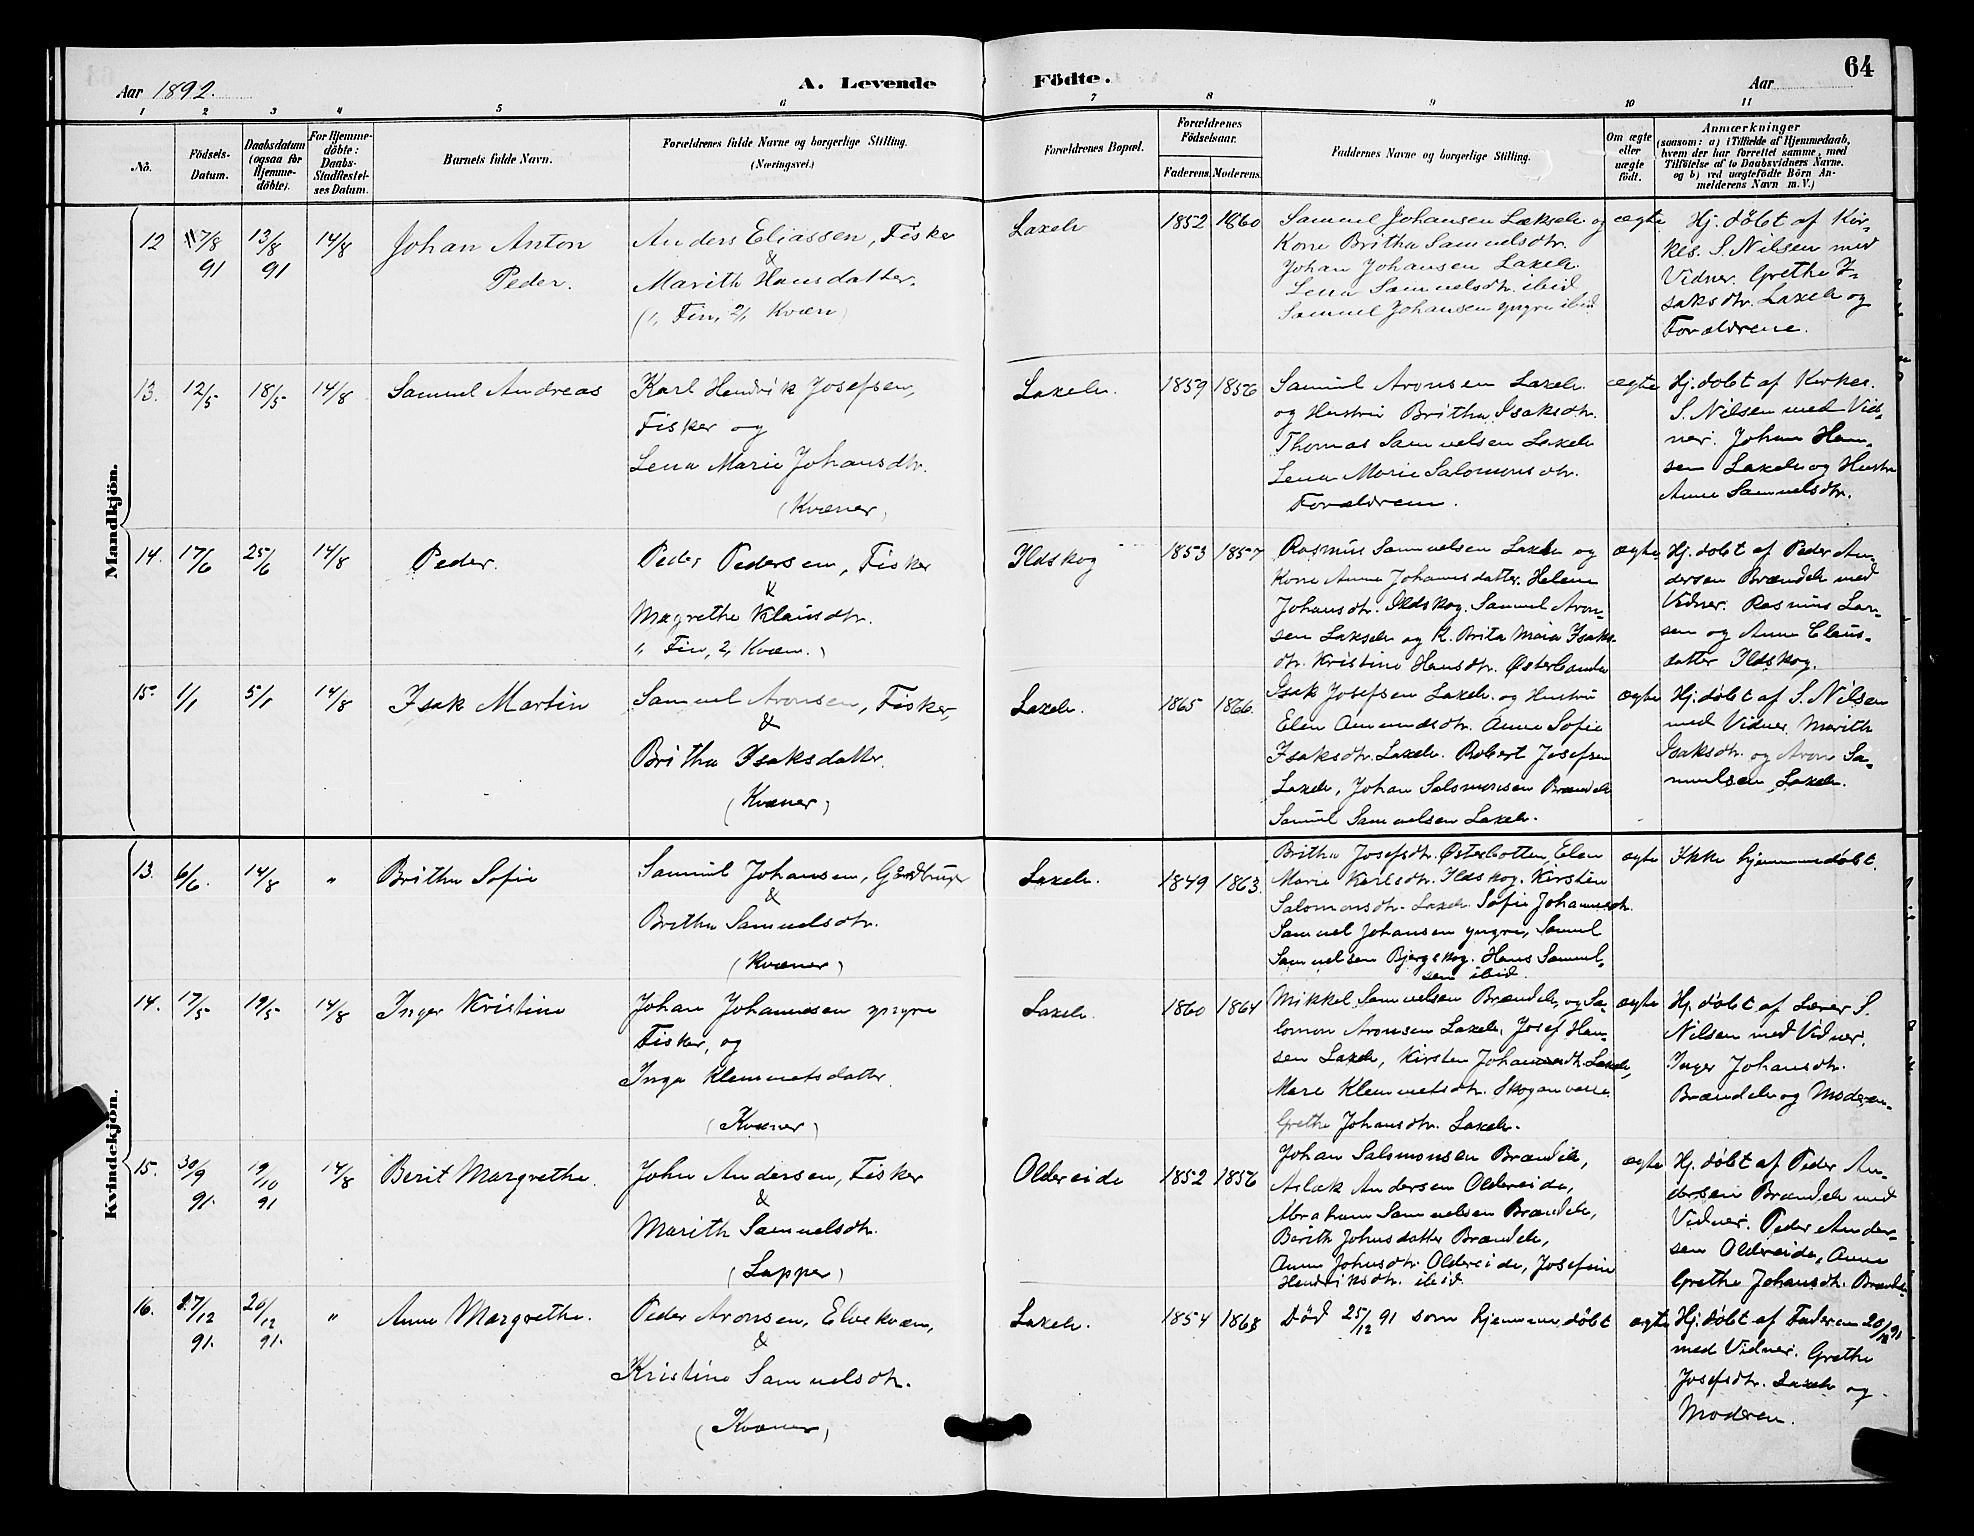 64
Aar 1892.
A. Levende Födte.
Aar
1 2 3 4 5 6 7 8 9 10 11
No.
Födsels-Datum.
Daabsdatum (ogsaa for Hjemme-döbte).
For Hjemme-döbte: Daabs-Stadfæstel-ses Datum.
Barnets fulde Navn.
Forældrenes fulde Navne og borgerlige Stilling.
(Næringsvei.)
Forældrenes Bopæl.
Forældrenes Födselsaar.
Faderens. Moderens.
Faddernes Navne og borgerlige Stilling.
Om ægte eller uægte födt.
Anmærkninger
(saasom: a) i Tilfælde af Hjemmedaab,
hvem der har forrettet samme, med
Tilföielse af to Daabsvidners Navne.
og b) ved uægtefödte Börn An-
melderens Navn m. V.)
Mandkjön.
12 7/8 91 13/8 91 14/8
Johan Anton
Peder.
Anders Eliassen, Fisker
&
Marith Hansdatter.
(1, Fin, 2, Kvæn)
Laxelv
1852 1860
Samuel Johansen Lakselv og
Kone Britha Samuelsdtr.
Johan Johansen Laxelv.
Lena Samuelsdtr. ibid
Samuel Johansen yngre ibid
ægte
Hj. döbt af Kir-
kes. S. Nilsen med
Vidner. Grethe I-
saksdtr. Laxelv og
Forældrene.
13. 12/5 18/5 14/8
Samuel Andreas
Karl Hendrik Josefsen,
Fisker og
Lena Marie Johansdtr.
(Kvæner)
Laxelv.
1859 1856
Samuel Aronsen Laxelv.
og Hustru Britha Isaksdtr.
Thomas Samuelsen Laxelv
Lena Marie Salomonsdtr.
Forældrene.
ægte
Hj. döbt af Kirkes.
S. Nilsen med Vid-
ner. Johan Han-
sen Laxelv og Hustru
Anne Samuelsdtr.
14. 17/6 25/6 14/8
Peder.
Peder Pedersen, Fisker
&
Magrethe Klausdtr.
1, Fin, 2, Kvæn.)
Ildskog
1853 1857
Rasmus Samuelsen Laxelv og
Kone Anne Johannsdatter. Helene
Johansdtr. Ildskog. Samuel Aron-
sen Lakselv og K. Brita Maia Isaks-
dtr. Kristine Hansdtr. Østerbotten
ægte
Hj. döbt af Peder An-
dersen Brændelv med
Vidner. Rasmus Lar-
sen og Anne Claus-
datter Ildskog.
15. 1/1 5/1 14/8
Isak Martin
Samuel Aronsen, Fisker,
&
Britha Isaksdatter.
(Kvæner)
Laxelv.
1865 1866.
Isak Josefsen Laxelv. og Hustru
Elen Amundsdtr. Anne Sofie
Isaksdtr. Laxelv. Robert Josefsen
Laxelv, Johan Salomonsen Brændelv
Samuel Samuelsen Laxelv.
ægte
Hj. döbt af S. Nilsen
med Vidner Marith
Isaksdtr. og Aron Sa-
muelsen Laxelv.
Kvindekjön.
13. 6/6. 14/8 "
Britha Sofie
Samuel Johansen, Gårdbruger
&
Britha Samuelsdtr.
(Kvæner)
Laxelv.
1849 1863.
Britha Josefsdtr. Østerbotten, Elen
Marie Karlsdtr. Ildskog. Kirsten
Salomonsdtr. Laxelv. Sofie Johannesdtr.
Samuel Johansen yngre, Samuel
Samuelsen Bjergskog. Hans Samuel-
sen ibid.
ægte
Ikke hjemmedöbt.
14. 17/5 19/5 14/8
Inger Kristine
Johan Johannesen yngre
Fisker, og
Inga Klemmetsdatter.
(Kvæner)
Laxelv.
1860 1864
Mikkel Samuelsen Brændelv og Sa-
lomon Aronsen Laxelv, Josef Han-
sen Laxelv, Kirsten Johannesdtr. Laxelv,
Mare Klemmetsdtr. Skoganvarre
Grethe Johansdtr. Laxelv.
ægte
Hj. döbt af Lærer S.
Nilsen med Vidner.
Inger Johansdtr.
Brændelv og Moderen.
15. 30/9 91. 19/10 91 14/8
Berit Margrethe.
John Andersen, Fisker
&
Marith Samuelsdtr.
(Lapper)
Oldereide
1852 1856
Johan Salomonsen Brændelv,
Aslak Andersen Oldereide,
Abraham Samuelsen Brændelv,
Berith Johnsdatter Brændelv,
Anne Johnsdtr. Oldereide, Josefine
Hendriksdtr. ibid
ægte
Hj. döbt af Peder An-
dersen Brændelv med
Vidner. Peder Ander-
sen Oldereide, Anne
Grethe Johansdtr. Brændelv
16. 7/12 91. 20/12 91. "
Anne Margrethe.
Peder Aronsen, Elvekvæn,
&
Kristine Samuelsdtr.
(Kvæner)
Laxelv.
1854 1868
Död 25/12 91 som hjemmedöbt
ægte
Hj. döbt af Faderen 20/12 91
med Vidner. Grethe
Josefsdtr. Laxelv og
Moderen.